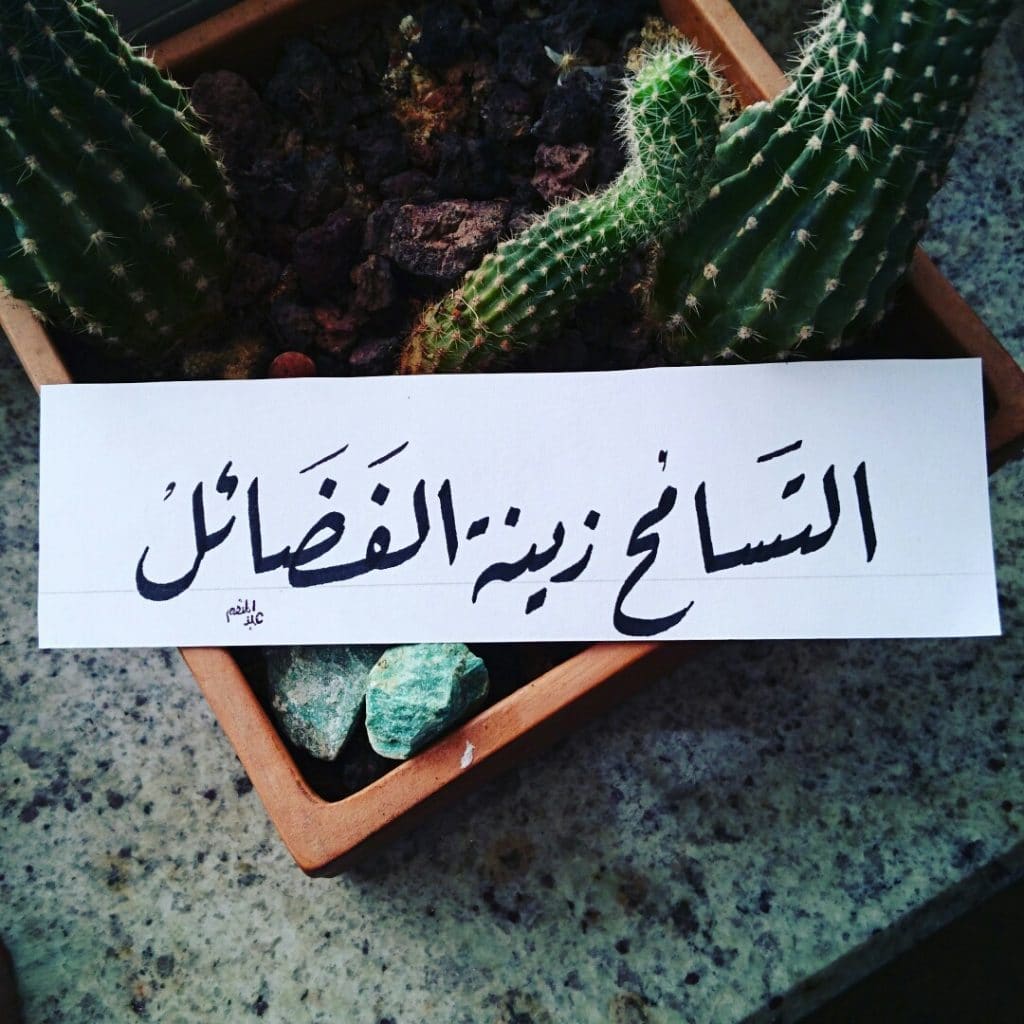 التَسامحُ زينة الفَضَائلُ
عبد المنعم